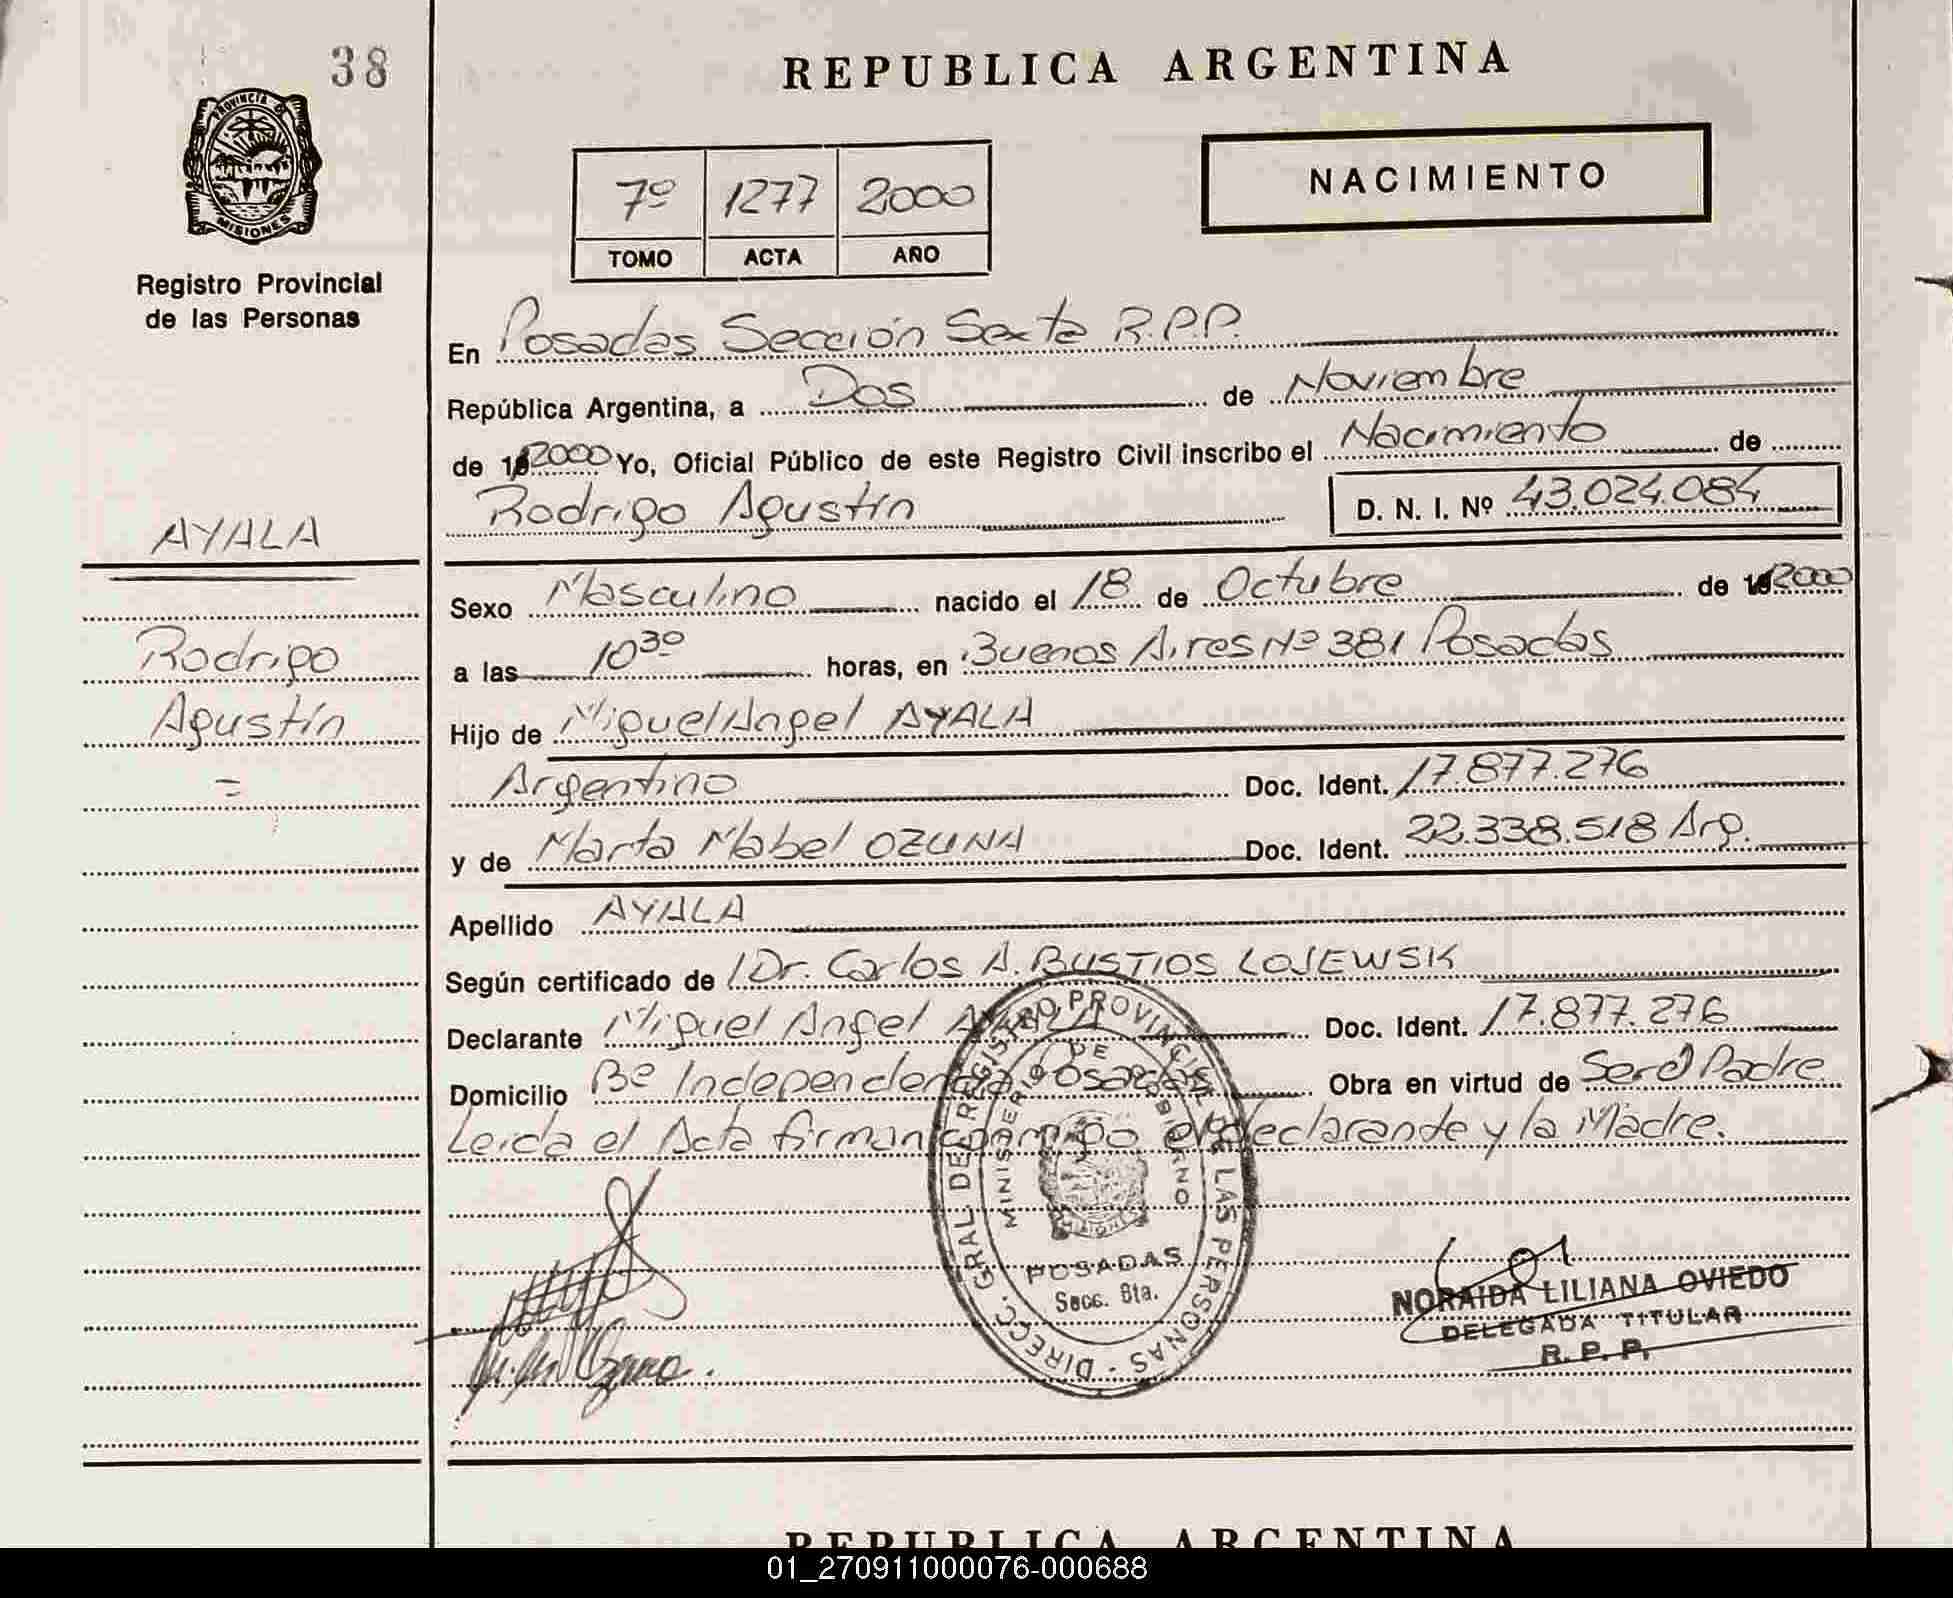 38
REPUBLICA ARGENTINA
PROVINCIA DE
MISIONES
Registro Provincial
de las Personas
7º 1277 2000
TOMO ACTA AÑO
NACIMIENTO
En Posadas Sección Sexta R.P.P.
República Argentina, a Dos de Noviembre
de 2000 Yo, Oficial Público de este Registro Civil inscribo el Nacimiento de
Rodrigo Agustín D. N. I. Nº 43.024.084
AYALA
Rodrigo
Agustín
=
Sexo Masculino nacido el 18 de Octubre de 2000
a las 10 30 horas, en Buenos Aires Nº 381 Posadas
Hijo de Miguel Angel AYALA
Argentino Doc. Ident. 17.877.276
y de Marta Mabel OZUNA Doc. Ident. 22.338.518 Arg.
Apellido AYALA
Según certificado de Dr. Carlos A. BUSTIOS LOJEWSK
Declarante Miguel Angel AYALA Doc. Ident. 17.877.276
Domicilio Bº Independencia Posadas Obra en virtud de Ser el Padre
Leida el Acta firman conmigo el declarante y la Madre.
DIRECC. GRAL DE REGISTRO PROVINCIAL DE LAS PERSONAS -
MINISTERIO DE GOBIERNO
MISIONES
POSADAS
Secc. 6ta.
NORAIDA LILIANA OVIEDO
DELEGADA TITULAR
R. P. P.
REPUBLICA ARGENTINA
01_270911000076-000688